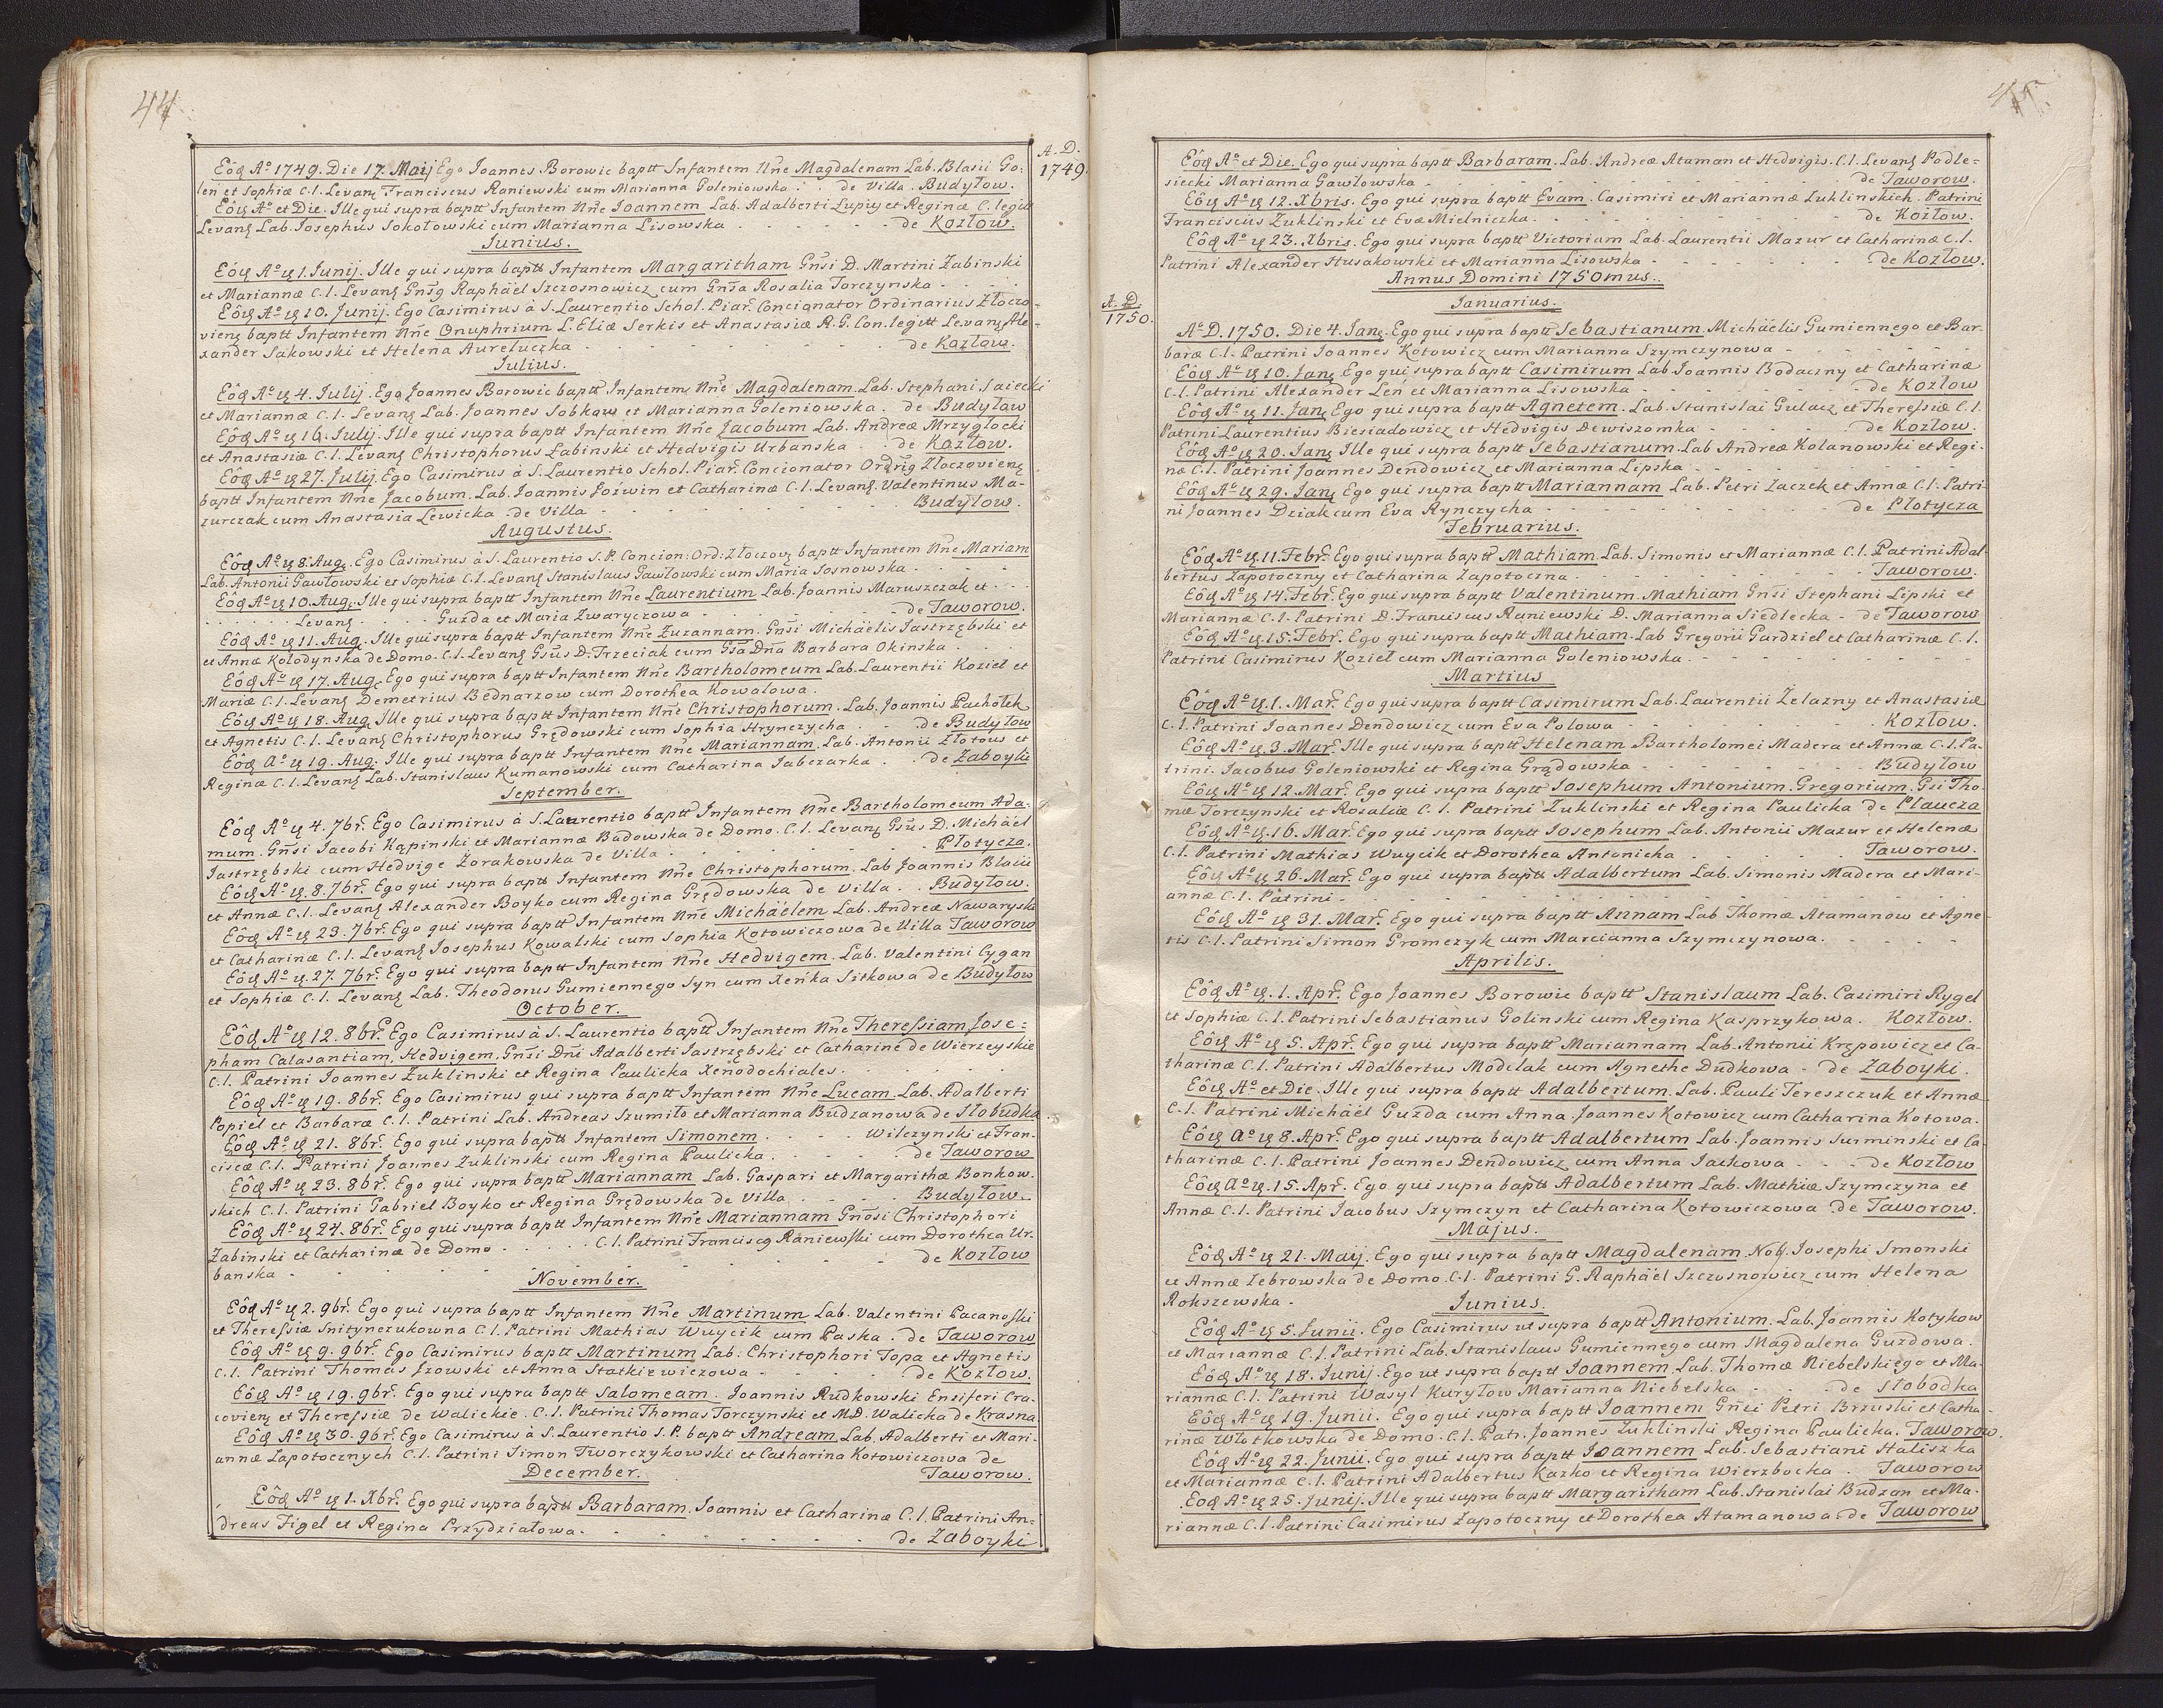 44
A. D.
1749.
Eôq Aº 1749. Die 17. Maij Ego Joannes Borowic baptt Infantem Nñe Magdalenam Lab. Blasii Go=
len et Sophiæ C.l. Levanꝭ Franciscus Raniewski cum Marianna Goleniowska . . de Villa . Budyłow.
Eôq Aº et Die. Ille qui supra baptt Infantem Nñe Joannem Lab. Adalberti Lupiy et Reginæ C. legitt
Levanꝭ Lab. Josephus Sokołowski cum Marianna Lisowska . . . . . . de Kozłow.
Junius.
Eôq Aº ꝗ 1. Junij. Ille qui supra baptt Infantem Margaritham Gñsi D. Martini Zabinski
et Mariannæ C.l. Levanꝭ Gñsꝗ Raphäel Szczosnowicz cum Gñsa Rosalia Torczynska - . . .
Eôq Aº ꝗ 10. Junij. Ego Casimirus à S. Laurentio Schol. Piar̃. Concionator Ordinarius Złoczo=
vienꝭ baptt Infantem Nñe Onuphrium L. Eliæ Serkis et Anastasiæ R.G. Con. legitt Levanꝭ Ale=
xander Sakowski et Helena Aureluczka . . . . . . . . . de Kazlow.
Julius.
Eôq Aº ꝗ 4. Julij. Ego Joannes Borowic baptt Infantem Nñe Magdalenam. Lab. Stephani Saiecki
et Mariannæ C.l. Levanꝭ Lab. Joannes Sobkow et Marianna Goleniowska. de Budyłow
Eôq Aº ꝗ 16. Julij. Ille qui supra baptt Infantem Nñe Jacobum Lab. Andreæ Mrzygłocki
et Anastasiæ C.l. Levanꝭ Christophorus Łabinski et Hedvigis Urbanska . . de Kozłow.
Eôq Aº ꝗ 27. Julij. Ego Casimirus à S. Laurentio Schol. Piar̃. Concionator Ordrĩg Złoczovienꝭ
baptt Infantem Nñe Jacobum. Lab. Joannis Joźwin et Catharinæ C.l. Levanꝭ. Valentinus Ma-
zurczak cum Anastasia Lewicka. de Villa - . . . . . . Budyłow.
Augustus.
Eôq Aº ꝗ 8. Aug. Ego Casimirus à S. Laurentio S. P. Concion: Ord: Złoczovꝭ baptt Infantem Nñe Mariam
Lab. Antonii Gawłowski et Sophiæ C.l. Levanꝭ Stanislaus Gawłowski cum Maria Sosnowska . . .
Eôq Aº ꝗ 10. Aug. Ille qui supra baptt Infantem Nñe Laurentium Lab. Joannis Maruszczak et . . .
. . . . . . Levanꝭ . . . . Guzda et Maria Zwaryczowa . . . . . . de Taworow.
Eôq Aº ꝗ 11. Aug. Ille qui supra baptt Infantem Nñe Zuzannam. Gñsi Michäelis Jastrzębski et
et Annæ Kołodynska de Domo. C.l. Levanꝭ Gsũs D. Trzeciak cum Gsã Dña Barbara Okinska . . .
Eôq Aº ꝗ 17. Aug. Ego qui supra baptt Infantem Nñe Bartholomeum Lab. Laurentii Kozieł et
Mariæ C.l. Levanꝭ Demetrius Bednarzow cum Dorothea Kowalowa.
Eôq Aº ꝗ 18. Aug. Ille qui supra baptt Infantem Nñe Christophorum. Lab. Joannis Pachołek
et Agnetis C.l. Levanꝭ Christophorus Grędowski cum Sophia Hrynczycha . . de Budyłow
Eôq Aº ꝗ 19. Aug. Ille qui supra baptt Infantem Nñe Mariannam. Lab. Antonii Złotous et
Reginæ C.l. Levanꝭ Lab. Stanislaus Kumanowski cum Catharina Jabczarka . . de Zaboyki
September.
Eôq Aº ꝗ 4. 7br̃. Ego Casimirus à S. Laurentio baptt Infantem Nñe Bartholomeum Ada-
mum. Gñsi Jacobi Kąpinski et Mariannæ Badowska de Domo. C.l. Levanꝭ Gsũs D. Michäel
Jastrzębski cum Hedvige Zorakowska de Villa . . . . . . Płotycza.
Eôq Aº ꝗ. 8. 7br̃. Ego qui supra baptt Infantem Nñe Christophorum. Lab Joannis Blaiu
et Annæ C.l. Levanꝭ Alexander Boyko cum Regina Grędowska de Villa . . Budyłow.
Eôq Aº ꝗ 23. 7br̃. Ego qui supra baptt Infantem Nñe Michäelem Lab. Andreæ Nawaryski
et Catharinæ C.l. Levanꝭ Josephus Kowalski cum Sophia Kotowiczowa de Villa Taworow
Eôq Aº ꝗ. 27. 7br̃. Ego qui supra baptt Infantem Nñe Hedvigem. Lab. Valentini Cygan
et Sophiæ C.l. Levanꝭ Lab. Theodorus Gumiennego Syn cum Xeńka Sitkowa de Budyłow
October.
Eôq Aº ꝗ 12. 8br̃. Ego Casimirus à S. Laurentio baptt Infantem Nñe Theressiam Jose=
pham Calasantiam, Hedvigem. Gñsi Dñi Adalberti Jastrzębski et Catharinæ de Wierzeyskie
C.l. Patrini Joannes Zuklinski et Regina Paulicka Xenodochiales.
Eôq Aº ꝗ 19. 8br̃. Ego Casimirus qui supra baptt Infantem Nñe Lucam. Lab. Adalberti
Popiel et Barbaræ C.l. Patrini Lab. Andreas Szumiło et Marianna Budzanowa de Słobudka
Eôq Aº ꝗ 21. 8br̃. Ego qui supra baptt Infantem Simonem . . . . Wilczynski et Fran-
ciscæ C.l. Patrini Joannes Zuklinski cum Regina Paulicka . . . . . de Taworow
Eôq Aº ꝗ 23. 8br̃. Ego qui supra baptt Mariannam Lab. Gaspari et Margarithæ Bonkow.
skich C.l. Patrini Gabriel Boyko et Regina Grędowska de Villa . . . . Budyłow.
Eôq Aº ꝗ 24. 8br̃. Ego qui supra baptt Infantem Nñe Mariannam Gñosi Christophori
Zabinski et Catharinæ de Domo . . . . . C.l. Patrini Franciscꝗ Raniewski cum Dorothea Ur-
banska - . . . . . . . . . de Kozłow
November.
Eôq Aº ꝗ 2. 9br̃. Ego qui supra baptt Infantem Nñe Martinum Lab. Valentini Pacanoski
et Theressiæ Snitynczukowna C.l. Patrini Mathias Wuycik cum Paska . de Taworow
Eôq Aº ꝗ 9. 9br̃. Ego Casimirus baptt Martinum Lab. Christophori Topa et Agnetis
C.l. Patrini Thomas Szowski et Anna Statkiewiczowa - . . . . de Kozłow.
Eôq Aº ꝗ 19. 9br̃. Ego qui supra baptt Salomeam. Joannis Rudkowski Ensiferi Cra-
covienꝭ et Theressiæ de Walickie. C.l. Patrini Thomas Torczynski et MD. Walicka de Krasna
Eôq Aº ꝗ 30. 9br̃. Ego Casimirus à S. Laurentio S. P. baptt Andream Lab. Adalberti et Mari-
annæ Zapotocznych C.l. Patrini Simon Tworczykowski et Catharina Kotowiczowa de
December. Taworow.
Eôq Aº ꝗ 1. Xbr̃. Ego qui supra baptt Barbaram. Joannis et Catharinæ C.l. Patrini An=
dreas Figel et Regina Przydziałowa. . . . . . . . . de Zaboyki
45.
A. D.
1750.
Eôq Aº et Die. Ego qui supra baptt Barbaram. Lab. Andreæ Ataman et Hedvigis. C.l. Levanꝭ Podle=
siecki Marianna Gawłowska - . . . . . . . . . de Taworow.
Eôq Aº ꝗ 12. Xbris. Ego qui supra baptt Evam. Casimiri et Mariannæ Zuklinskich. Patrini
Franciscus Zuklinski et Evæ Mielniczka. . . . . . . . . de Kozłow.
Eôq Aº ꝗ 23. Xbris. Ego qui supra baptt Victoriam Lab. Laurentii Mazur et Catharinæ C.l.
Patrini Alexander Husakowski et Marianna Lisowska - . . . . . . de Kozłow.
Annus Domini 1750mus.
Januarius.
Aº D. 1750. Die 4. Janꝭ. Ego qui supra baptt Sebastianum. Michäelis Gumiennego et Bar-
baræ C.l. Patrini Joannes Kotowicz cum Marianna Szymczynowa - . . . . .
Eôq Aº ꝗ 10. Janꝭ Ego qui supra baptt Casimirum Lab Joannis Bodaczny et Catharinæ
C.l. Patrini Alexander Leń et Marianna Lisowska - . . . . . . de Kozlow
Eôq Aº ꝗ 11. Janꝭ Ego qui supra baptt Agnetem. Lab. Stanislai Gulacz et Theressiæ C.l.
Patrini Laurentius Biesiadowicz et Hedvigis Dewiszomka - . . . . de Kozlow.
Eôq Aº ꝗ 20. Janꝭ Ille qui supra baptt Sebastianum. Lab Andreæ Kolanowski et Regi-
næ C.l. Patrini Joannes Dendowicz et Marianna Lipska - . . . . . .
Eôq Aº ꝗ 29. Janꝭ Ego qui supra baptt Mariannam Lab. Petri Zaczek et Annæ C.l. Patri-
ni Joannes Dziak cum Eva Rynczycha - . . . . . . . de Płotycza
Februarius.
Eôq Aº ꝗ. 11. Febr̃. Ego qui supra baptt Mathiam. Lab. Simonis et Mariannæ C.l. Patrini Adal
bertus Zapotoczny et Catharina Zapotoczna . . . . . . . . Taworow.
Eôq Aº ꝗ 14. Febr̃. Ego qui supra baptt Valentinum. Mathiam Gñsi Stephani Lipski et
Mariannæ C.l. Patrini D. Franciscus Raniewski D. Marianna Siedlecka - de Taworow
Eôq Aº ꝗ. 15. Febr̃. Ego qui supra baptt Mathiam. Lab Gregorii Gardziel et Catharinæ C.l.
Patrini Casimirus Kozieł cum Marianna Goleniowska. - . . . . . .
Martius
Eôq Aº ꝗ. 1. Mar̃. Ego qui supra baptt Casimirum Lab. Laurentii Żelazny et Anastasiæ
C.l. Patrini Joannes Dendowicz cum Eva Polowa - . . . . . . Kozłow.
Eôq Aº ꝗ. 3. Mar̃. Ille qui supra baptt Helenam Bartholomei Madera et Annæ C.l. Pa-
trini. Jacobus Goleniowski et Regina Grądowska - . . . . . . Budyłow
Eôq Aº ꝗ 12. Mar̃. Ego qui supra baptt Josephum Antonium. Gregorium. Gsi Tho-
mæ Torczynski et Rosaliæ C.l. Patrini Zuklinski et Regina Paulicka de Plaucza
Eôq Aº ꝗ. 16. Mar̃. Ego qui supra baptt Josephum Lab. Antonii Mazur et Helenæ
C.l. Patrini Mathias Wuycik et Dorothea Antonicha . . . . . Taworow.
Eôq Aº ꝗ 26. Mar̃. Ego qui supra baptt Adalbertum Lab. Simonis Madera et Mari-
annæ C.l. Patrini - . . . . . . . . . . . .
Eôq Aº ꝗ 31. Mar̃. Ego qui supra baptt Annam Lab Thomæ Atamanow et Agne-
tis C.l. Patrini Simon Gromczyk cum Marcianna Szymczynowa. - . . . .
Aprilis.
Eôq Aº ꝗ. 1. Apr̃. Ego Joannes Borowic baptt Stanislaum Lab. Casimiri Rygel
et Sophiæ C.l. Patrini Sebastianus Golinski cum Regina Kasprzykowa. Kozłow.
Eôq Aº ꝗ 5. Apr̃. Ego qui supra baptt Mariannam Lab. Antonii Krępowicz et Ca-
tharinæ C.l. Patrini Adalbertus Modelak cum Agnethe Dudkowa - de Zaboyki.
Eôq Aº et Die. Ille qui supra baptt Adalbertum. Lab. Pauli Tereszczuk et Annæ
C.l. Patrini Michäel Guzda cum Anna. Joannes Kotowicz cum Catharina Kotowa.
Eôq Aº ꝗ 8. Apr̃. Ego qui supra baptt Adalbertum Lab. Joannis Surminski et Ca
tharinæ C.l. Patrini Joannes Dendowicz cum Anna Jackowa - . . de Kozłow
Eôq Aº ꝗ. 15. Apr̃. Ego qui supra baptt Adalbertum Lab. Mathiæ Szymczyna et
Annæ C.l. Patrini Jacobus Szymczyn et Catharina Kotowiczowa de Taworow.
Majus.
Eôq Aº ꝗ 21. Maij. Ego qui supra baptt Magdalenam. Nob. Josephi Smonski
et Annæ Zebrowska de Domo. C.l. Patrini G. Raphäel Szczosnowicz cum Helena
Rokszewska - Junius.
Eôq Aº ꝗ 5. Junii. Ego Casimirus ut supra baptt Antonium. Lab. Joannis Kotykow
et Mariannæ C.l. Patrini Lab. Stanislaus Gumiennego cum Magdalena Guzdowa.
Eôq Aº ꝗ 18. Junij. Ego ut supra baptt Joannem Lab. Thomæ Niebelskiego et Ma-
riannæ C.l. Patrini Wasyl Kuryłow Marianna Niebelska - . . . de Słobodka
Eôq Aº ꝗ 19. Junii. Ego qui supra baptt Joannem Gñẽi Petri Brzuski et Catha-
rinæ Włotkowska de Domo. C.l. Patr. Joannes Zuklinski Regina Paulicka. Taworow.
Eôq Aº ꝗ 22. Junii. Ego qui supra baptt Joannem Lab. Sebastiani Haliszka
et Mariannæ C.l. Patrini Adalbertus Kazko et Regina Wierzbocka . Taworow
Eôq Aº ꝗ 25. Junij. Ille qui supra baptt Margaritham Lab. Stanislai Budzan et Ma-
riannæ C.l. Patrini Casimirus Zapotoczny et Dorothea Atamanowa de Taworow